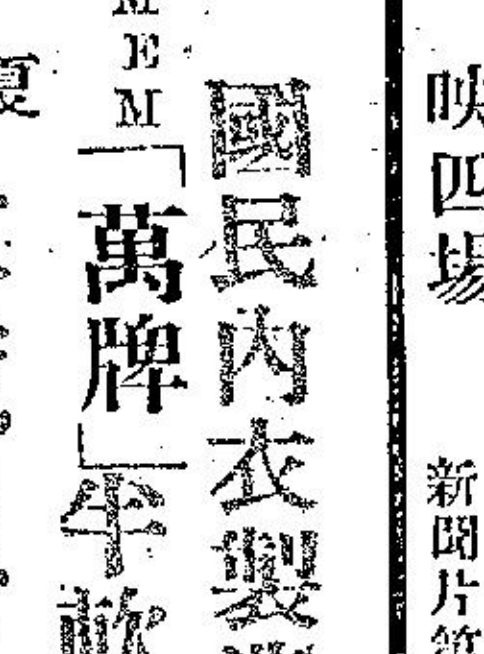 映四場 新聞片
國民內衣製
MEM「萬牌」半軟
夏